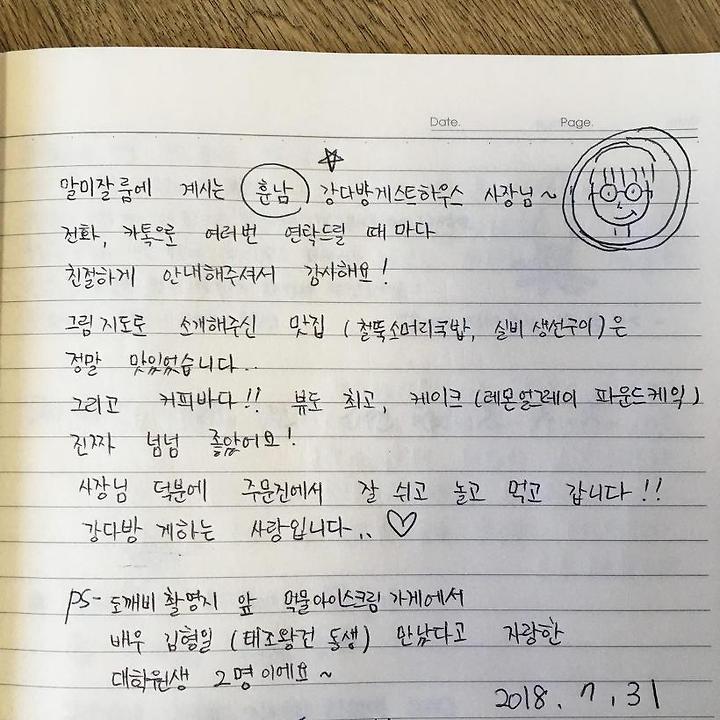 Date. Page.
말미잘룸에 계시는 훈남 강다방게스트하우스 사장님~
전화, 카톡으로 여러번 연락드릴 때마다
친절하게 안내해주셔서 감사해요!
그림지도로 소개해주신 맛집 (철뚝소머리국밥, 실비 생선구이)은
정말 맛있었습니다..
그리고 커피바다!! 뷰도 최고, 케이크 (레몬얼그레이 파운드케익)
진짜 넘넘 좋았어요!
사장님 덕분에 주문진에서 잘 쉬고 놀고 먹고 갑니다!!
강다방 게하는 사랑입니다.. ♡
PS- 도깨비촬영지 앞 먹물아이스크림 가게에서
배우 김형일 (태조왕건 동생) 만났다고 자랑한
대학원생 2명이에요~
2018. 7. 31